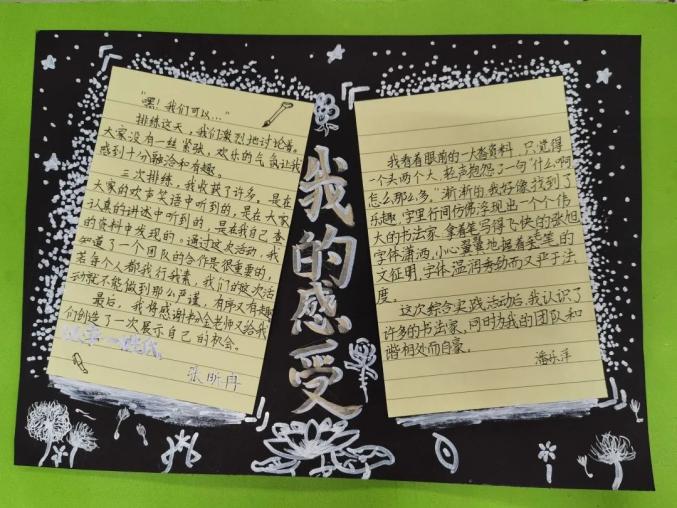 我的感受
"嘿！我们可以…"
排练这天，我们激烈地讨论着。
大家没有一丝紧张，欢乐的气氛让我
感到十分融洽和有趣。
三次排练，我收获了许多。是在
大家的欢声笑语中听到的，是在大家
认真的讲述中听到的，是在我自己查
的资料中发现的。通过这次活动，我
知道了一个团队的合作是很重要的，
若每个人都我行我素，我们的这次活
动就不能做到那么严谨、有序又有趣
最后，我将感谢金老师又给我
们创造了一次展示自己的机会。
张昕冉
我看着眼前的一大沓资料，只觉得
一个头两个大，轻声抱怨了一句"什么啊
怎么那么多。"渐渐的，我好像找到了
乐趣，字里行间仿佛浮现出一个个伟
大的书法家，拿着笔写得飞快的张旭
字体潇洒，小心翼翼地握着笔的
文征明，字体温润秀劲而又严于法
度。
这次综合实践活动后，我认识了
许多的书法家，同时为我的团队和
谐相处而自豪。
潘乐洋